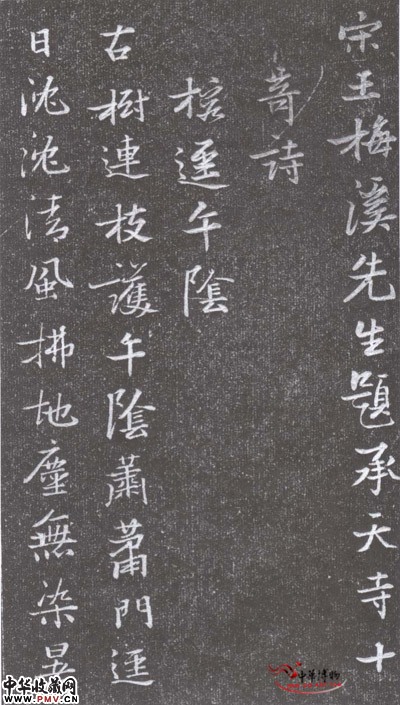 宋王梅溪先生題承天寺十
奇詩
榕逕午陰
古樹連枝護午陰蕭蕭門逕
日沈沈清風拂地塵無染昼
中华博物
中华收藏网
www.PMV.CN